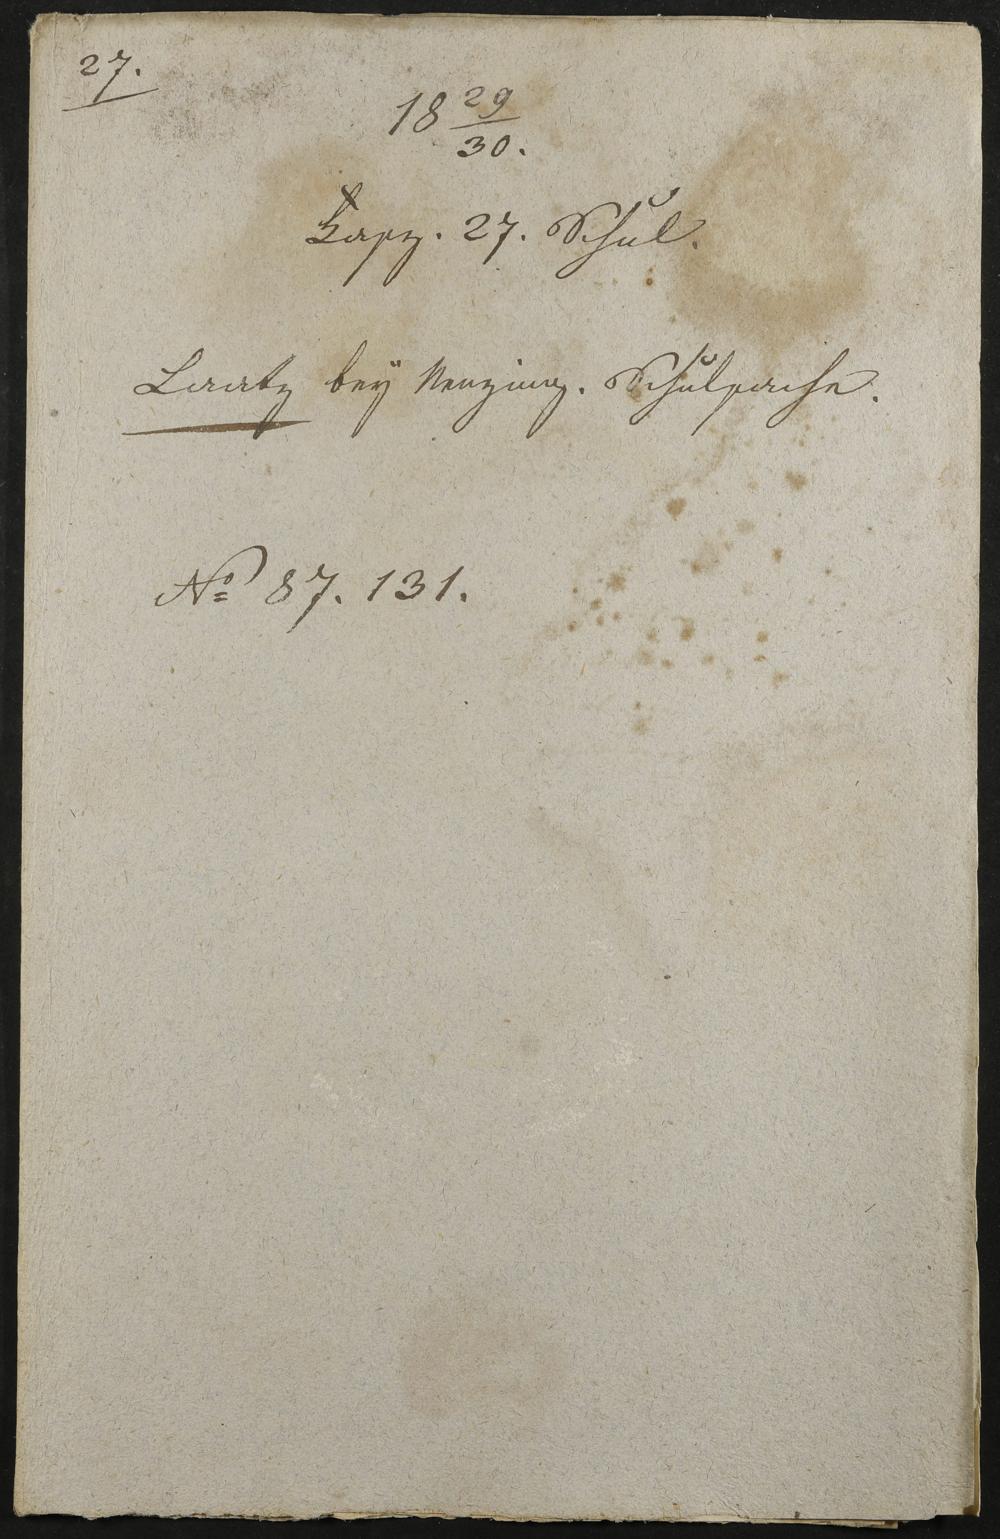 27.
18 29/30.
Fasz. 27. Schul.
Laatz bey Nenzing. Schulsache.
Nº 87. 131.